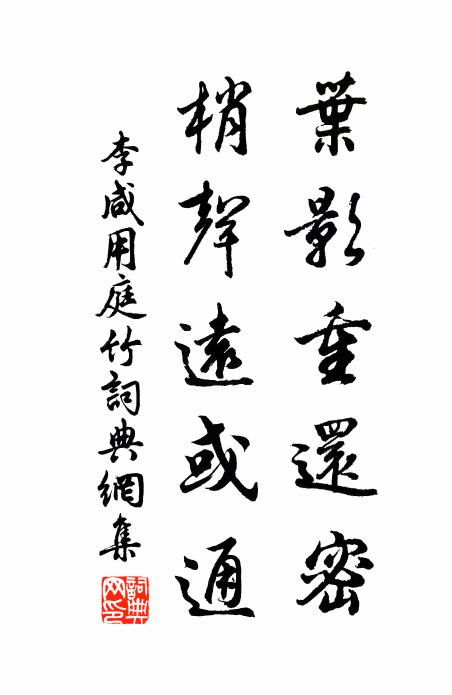 葉影重還密
梢聲遠或通
李咸用庭竹詞典網集
詞典網印